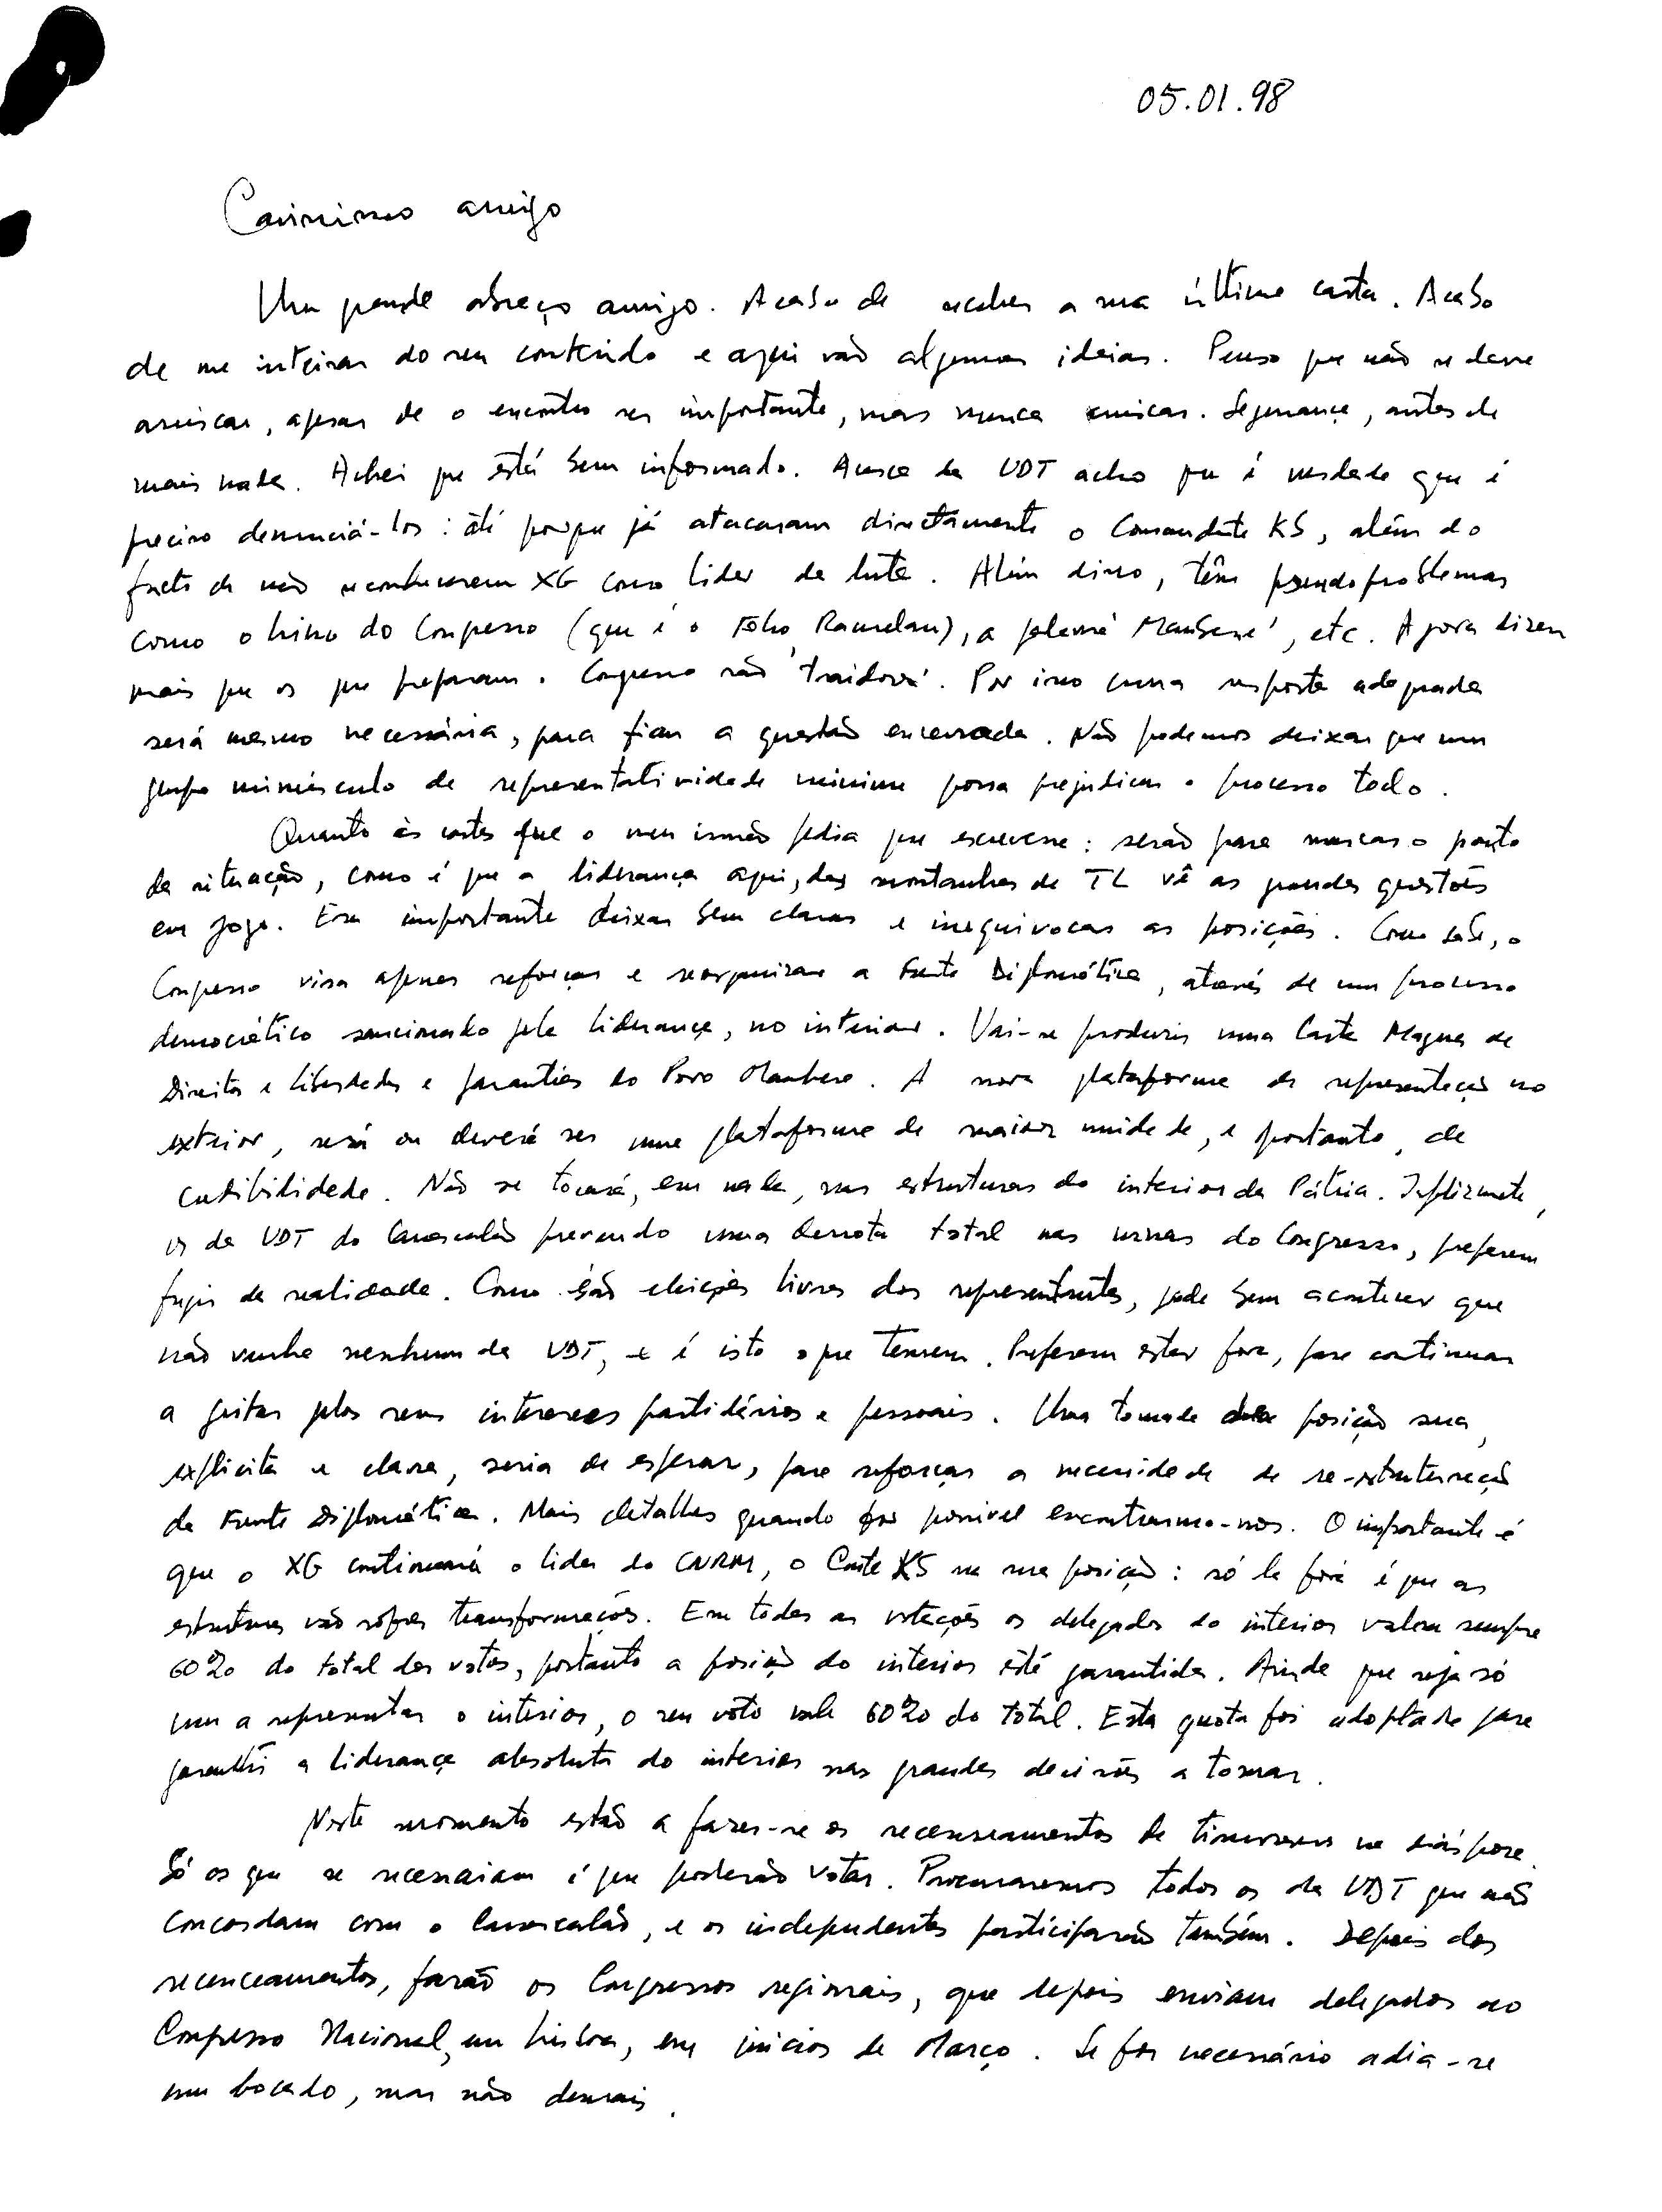 05.01.98
Caríssimo amigo
Um grande abraço amigo. Acabo de receber a sua última carta. Acabo
de me inteirar do seu conteúdo e aqui vão algumas ideias. Penso que não se deve
arriscar, apesar de o encontro ser importante, mas nunca arriscar. Segurança, antes de
mais nada. Achei que está bem informado. Acerca da UDT acho que é verdade que é
preciso denunciá-los: até porque já atacaram directamente o Comandante KS, além do
facto de não reconhecerem XG como líder da luta. Além disso, têm pseudoproblemas
como o hino do Congresso (que é o Foho Ramelau), a palavra 'Maubere', etc. Agora dizem
mais que os que preparam o Congresso são 'traidores'. Por isso uma resposta adequada
será mesmo necessária, para ficar a questão encerrada. Não podemos deixar que um
grupo minúsculo de representatividade mínima possa prejudicar o processo todo.
Quanto às cartas que o meu irmão pedia que escrevesse: serão para marcar o ponto
da situação, como é que a liderança aqui, das montanhas de TL vê as grandes questões
em jogo. Era importante deixar bem claras e inequívocas as posições. Como sabe, o
Congresso visa apenas reforçar e reorganizar a Frente Diplomática, através de um processo
democrático sancionado pela liderança, no interior. Vai-se produzir uma Carta Magna de
Direitos e liberdades e garantias do Povo Maubere. A nova plataforma de representação no
exterior, será ou deverá ser uma plataforma de maior unidade, e portanto, de
credibilidade. Não se tocará, em nada, nas estruturas do interior da Pátria. Infelizmente,
os da UDT do Carrascalão prevendo uma derrota total nas urnas do Congresso, preferem
fugir da realidade. Como são eleições livres dos representantes, pode bem acontecer que
não venha nenhum da UDT, e é isto o que temem. Preferem estar fora, para continuar
a gritar pelos seus interesses partidários e pessoais. Uma tomada de posição sua,
explícita e clara, seria de esperar, para reforçar a necessidade de re-estruturação
da Frente Diplomática. Mais detalhes quando for possível encontrarmo-nos. O importante é
que o XG continuará o líder do CNRM, o Cmdte KS na sua posição: só lá fora é que as
estruturas vão sofrer transformações. Em todas as votações os delegados do interior valem sempre
60% do total dos votos, portanto a posição do interior está garantida. Ainda que seja só
um a representar o interior, o seu voto vale 60% do total. Esta quota foi adoptada para
garantir a liderança absoluta do interior nas grandes decisões a tomar.
Neste momento estão a fazer-se os recenseamentos de timorenses na diáspora.
Só os que se recenseiam é que poderão votar. Procuraremos todos os da UDT que não
concordam com o Carrascalão, e os independentes participarão também. Depois dos
recenceamentos, farão os Congressos regionais, que depois enviam delegados ao
Congresso Nacional, em Lisboa, em inícios de Março. Se for necessário adia-se
um bocado, mas não demais.